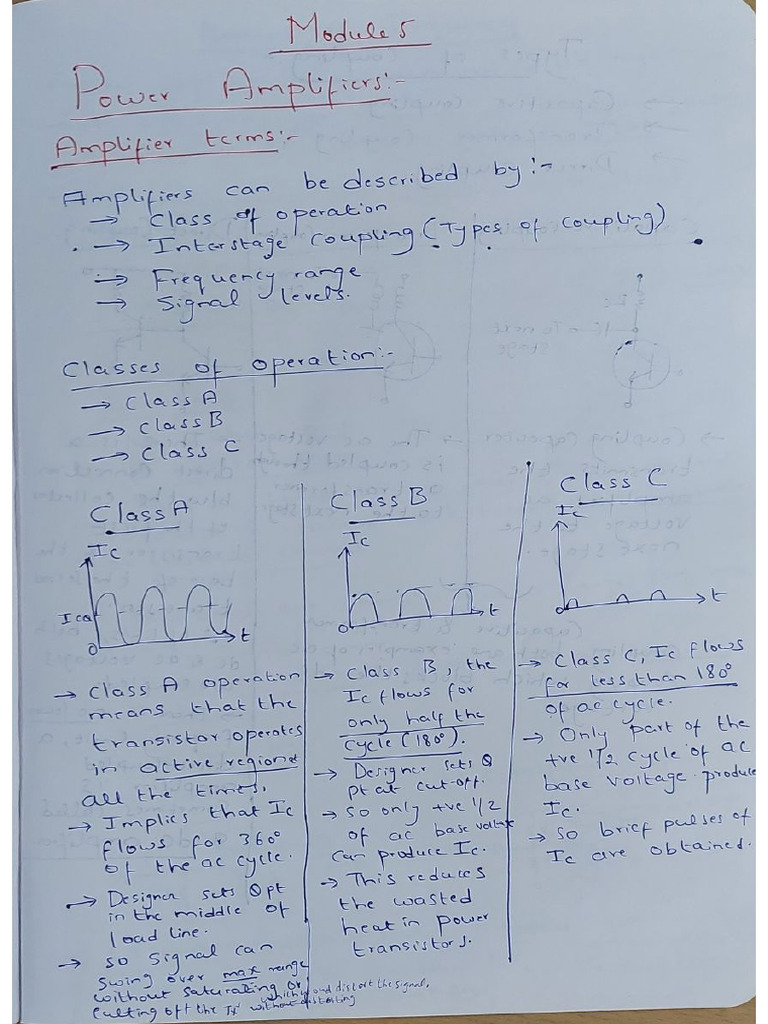 Module 5
Power Amplifiers:-
Amplifier terms:-
Amplifiers can be described by :-
→ Class of operation
→ Interstage Coupling (Types of coupling)
→ Frequency range
→ Signal levels.
Classes of operation:-
→ Class A
→ Class B
→ Class C
Class A
Ic
Icq
0
t
→ Class A operation
means that the
transistor operates
in active region
all the times.
→ Implies that Ic
flows for 360°
of the ac cycle.
→ Designer sets Q pt
in the middle of
load line.
→ So signal can
swing over max range
without saturating or
cutting off the
which would distort the signal.
without distorting
Class B
Ic
0
t
→ Class B, the
Ic flows for
only half the
cycle (180°).
→ Designer sets Q
pt at cut-off.
→ So only +ve 1/2
of ac base voltage
can produce Ic.
→ This reduces
the wasted
heat in power
transistors.
Class C
Ic
0
t
→ Class C, Ic flows
for less than 180°
of ac cycle.
→ Only part of the
+ve 1/2 cycle of ac
base voltage produce
Ic.
→ So brief pulses of
Ic are obtained.